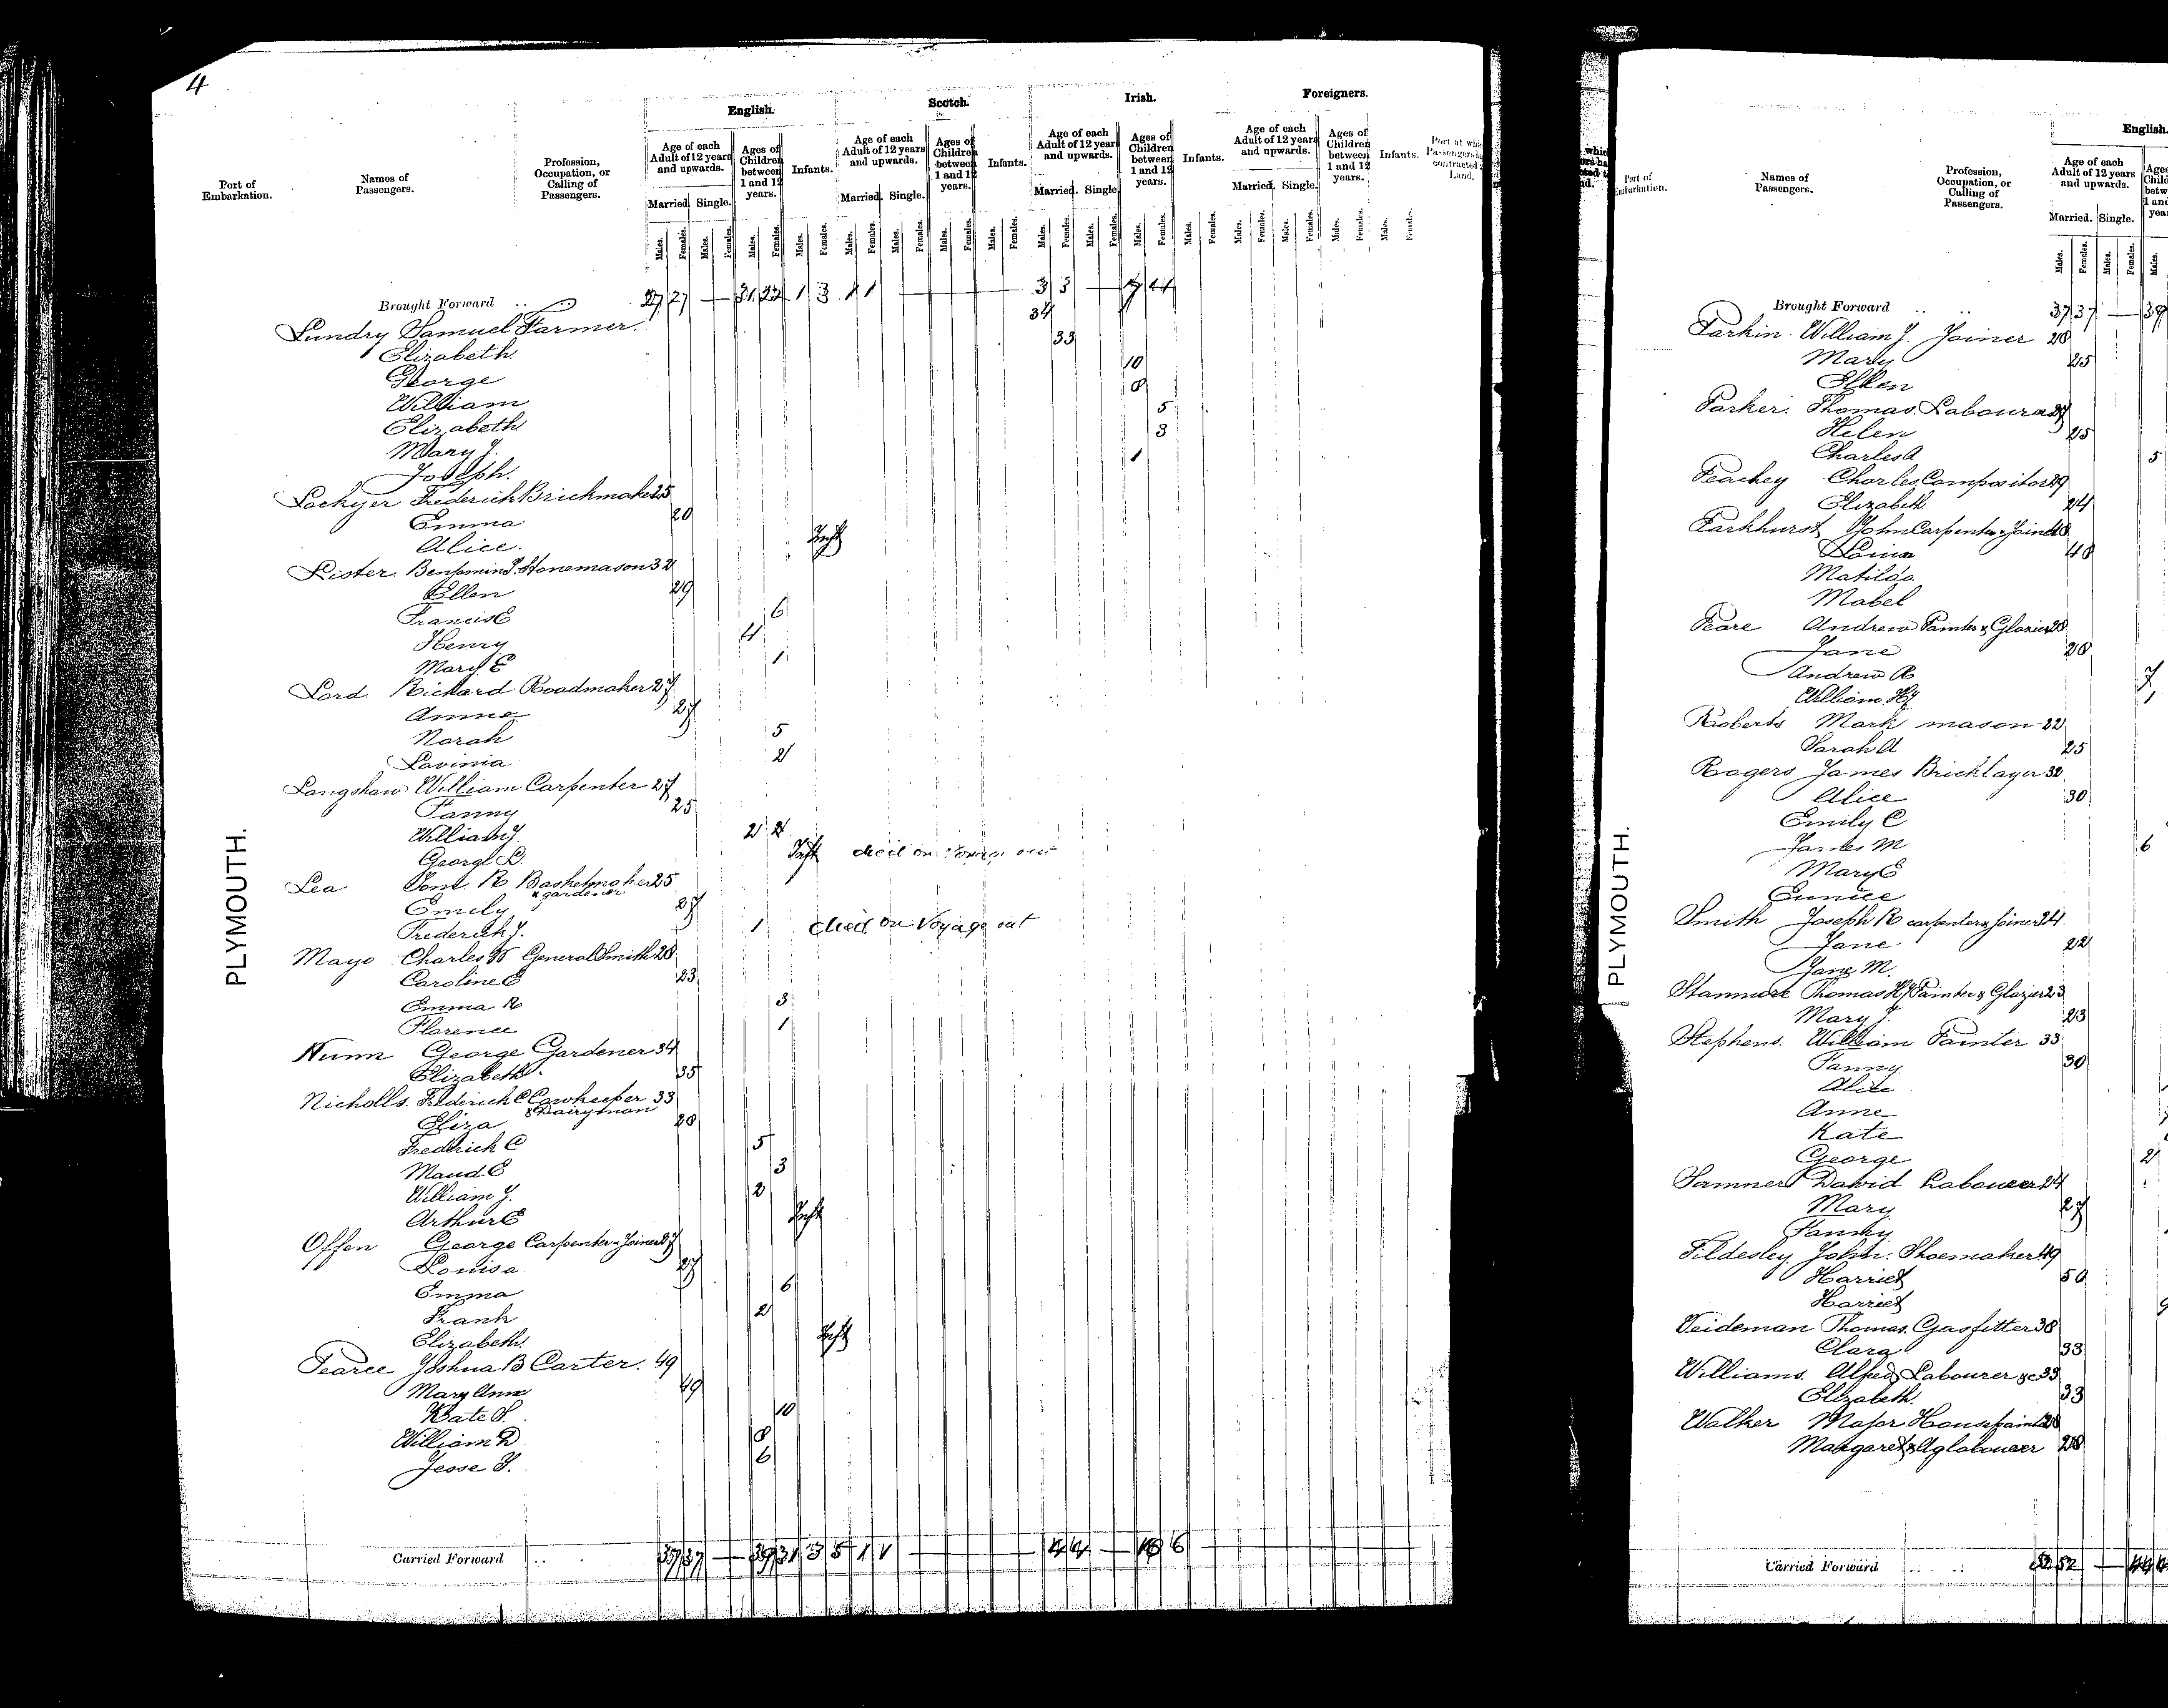 4
English. Scotch. Irish. Foreigners.
Port of Embarkation. Names of Passengers. Profession, Occupation, or Calling of Passengers. Age of each Adult of 12 years and upwards. Ages of Children between 1 and 12 years. Infants. Age of each Adult of 12 years and upwards. Ages of Children between 1 and 12 years. Infants. Age of each Adult of 12 years and upwards. Ages of Children between 1 and 12 years. Infants. Age of each Adult of 12 years and upwards. Ages of Children between 1 and 12 years. Infants. Port at which Passengers contracted Land.
Married. Single. Married. Single. Married. Single. Married. Single.
Males. Females. Males. Females. Males. Females. Males. Females. Males. Females. Males. Females. Males. Females. Males. Females. Males. Females. Males. Females. Males. Females. Males. Females. Males. Females. Males. Females. Males. Females. Males. Females.
PLYMOUTH.
Brought Forward 27 27 — 31 22 1 3 1 1 — 3 3 — 7 4
Lundry Samuel Farmer. 34
Elizabeth 33
George 10
William 8
Elizabeth 5
Mary J. 3
Joseph. 1
Lockyer Frederick Brickmaker 25
Emma 20
Alice. Inft
Lister Benjamin J. Stonemason 32
Ellen 29
Francis E 6
Henry 4
Mary E 1
Lord Richard Roadmaker 27
Anne 27
Norah 5
Lavinia 2
Langshaw William Carpenter 27
Fanny 25
William J. 2
George D. Inft died on voyage out
Lea R Basketmaker 25
& gardener
Emily 27
Frederick J. 1 died on Voyage out
Mayo Charles W General Smith 28
Caroline E 23
Emma R 3
Florence 1
Nunn George Gardener 34
Elizabeth 35
Nicholls. Frederick C Cowkeeper 33
& Dairyman
Eliza 28
Fredrick C 5
Maud. E 3
William J. 2
Arthur E Inft
Offen George Carpenter & Joiner 27
Louisa 27
Emma 6
Frank 2
Elizabeth. Inft
Pearce Joshua B Carter. 49
Mary Ann 49
Kate S. 10
William D 8
Jesse J. 6
Carried Forward 37 37 — 39 31 3 5 1 1 — 4 4 — 10 6
English.
Port of Embarkation. Names of Passengers. Profession, Occupation, or Calling of Passengers. Age of each Adult of 12 years and upwards.
Married. Single.
Males. Females. Males. Females. Males.
PLYMOUTH.
Brought Forward 37 37 — 39
Parkin. William J. Joiner 28
Mary 25
Ellen
Parker. Thomas Labourer 27
Helen 25
Charles A 5
Peachey Charles Compositor 29
Elizabeth 24
Parkhurst John Carpenter & Joiner 48
Louisa 48
Matilda
Mabel
Peare Andrew Painter & Glazier 28
Jane 28
Andrew R 7
William H 1
Roberts Mark mason 22
Sarah A 25
Rogers James Bricklayer 32
Alice 30
Emily C
James M 6
Mary E
Eunice
Smith Joseph R carpenter & Joiner 24
Jane 22
Jane M.
Stanmore Thomas H Painter & Glazier 23
Mary J. 23
Stephens. William Painter 33
Fanny 30
Alice
Anne
Kate
George 2
Samner David Labourer 24
Mary 27
Fanny
Tildesley John. Shoemaker 49
Harriet 50
Harriet
Veideman Thomas. Gasfitter 38
Clara 33
Williams. Alfred Labourer &c 35
Elizabeth. 33
Walker Major Housepainter 28
Margaret & Ag labourer 28
Carried Forward 52 52 — 44